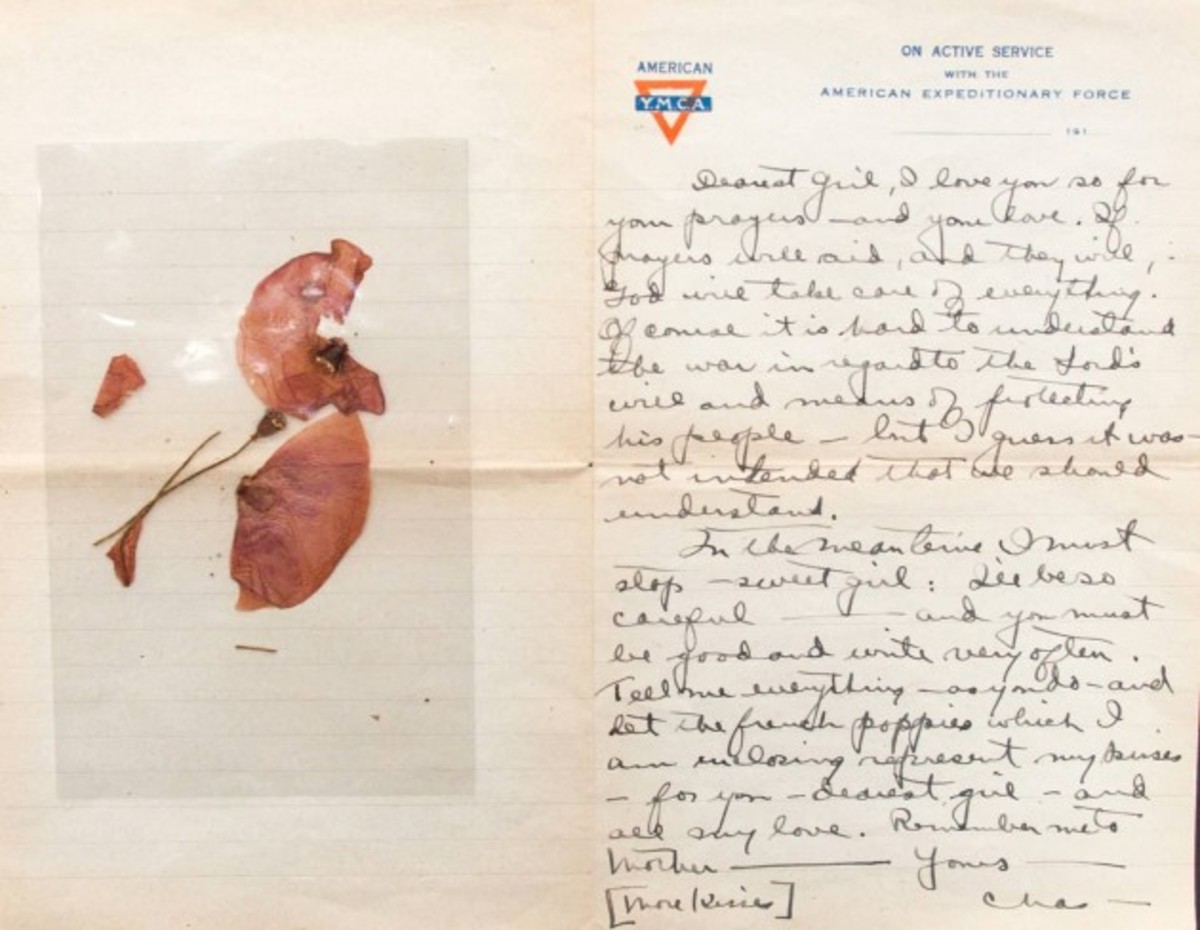 AMERICAN
Y.M.C.A.
ON ACTIVE SERVICE
WITH THE
AMERICAN EXPEDITIONARY FORCE
191
Dearest girl, I love you so for
your prayers – and your love. If
prayers will aid, and they will,
God will take care of everything.
Of course it is hard to understand
the war in regard to the Lord's
will and means of protecting
his people – but I guess it was
not intended that we should
understand.
In the meantime I must
stop – sweet girl: I'll be so
careful — and you must
be good and write very often.
Tell me everything – as you do – and
let the french poppies which I
am inclosing represent my kisses
– for you – dearest girl – and
all my love. Remember me to
Mother — Yours —
[More kisses]
Chas –